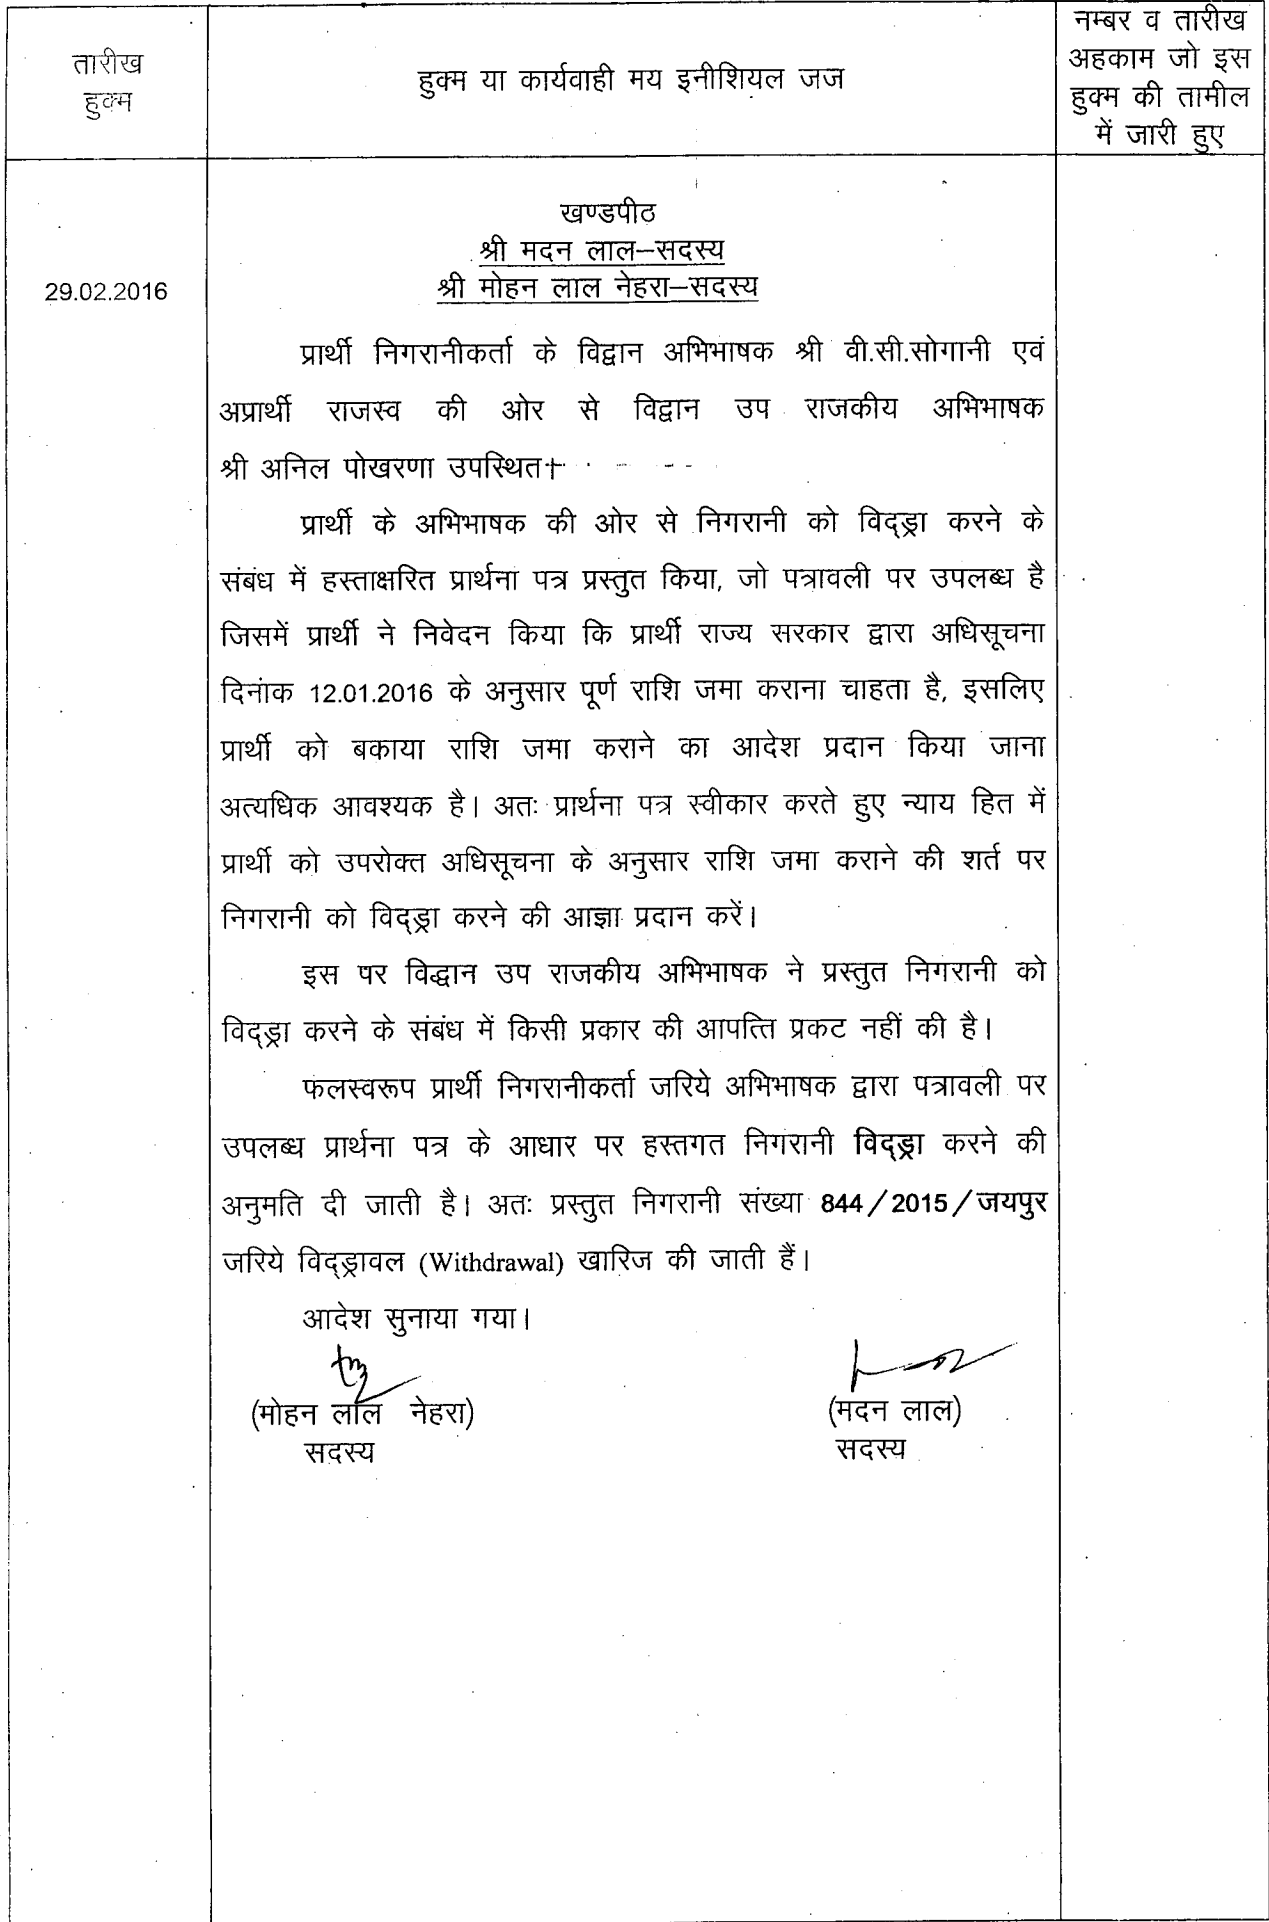 तारीख
हुक्म
हुक्म या कार्यवाही मय इनीशियल जज
नम्बर व तारीख
अहकाम जो इस
हुक्म की तामील
में जारी हुए
29.02.2016
खण्डपीठ
श्री मदन लाल–सदस्य
श्री मोहन लाल नेहरा–सदस्य
प्रार्थी निगरानीकर्ता के विद्वान अभिभाषक श्री वी.सी.सोगानी एवं
अप्रार्थी राजस्व की ओर से विद्वान उप राजकीय अभिभाषक
श्री अनिल पोखरणा उपस्थित।
प्रार्थी के अभिभाषक की ओर से निगरानी को विद्ड्रा करने के
संबंध में हस्ताक्षरित प्रार्थना पत्र प्रस्तुत किया, जो पत्रावली पर उपलब्ध है
जिसमें प्रार्थी ने निवेदन किया कि प्रार्थी राज्य सरकार द्वारा अधिसूचना
दिनांक 12.01.2016 के अनुसार पूर्ण राशि जमा कराना चाहता है, इसलिए
प्रार्थी को बकाया राशि जमा कराने का आदेश प्रदान किया जाना
अत्यधिक आवश्यक है। अतः प्रार्थना पत्र स्वीकार करते हुए न्याय हित में
प्रार्थी को उपरोक्त अधिसूचना के अनुसार राशि जमा कराने की शर्त पर
निगरानी को विद्ड्रा करने की आज्ञा प्रदान करें।
इस पर विद्धान उप राजकीय अभिभाषक ने प्रस्तुत निगरानी को
विद्ड्रा करने के संबंध में किसी प्रकार की आपत्ति प्रकट नहीं की है।
फलस्वरूप प्रार्थी निगरानीकर्ता जरिये अभिभाषक द्वारा पत्रावली पर
उपलब्ध प्रार्थना पत्र के आधार पर हस्तगत निगरानी विद्ड्रा करने की
अनुमति दी जाती है। अतः प्रस्तुत निगरानी संख्या 844/2015/जयपुर
जरिये विद्ड्रावल (Withdrawal) खारिज की जाती हैं।
आदेश सुनाया गया।
(मोहन लाल नेहरा)
सदस्य
(मदन लाल)
सदस्य